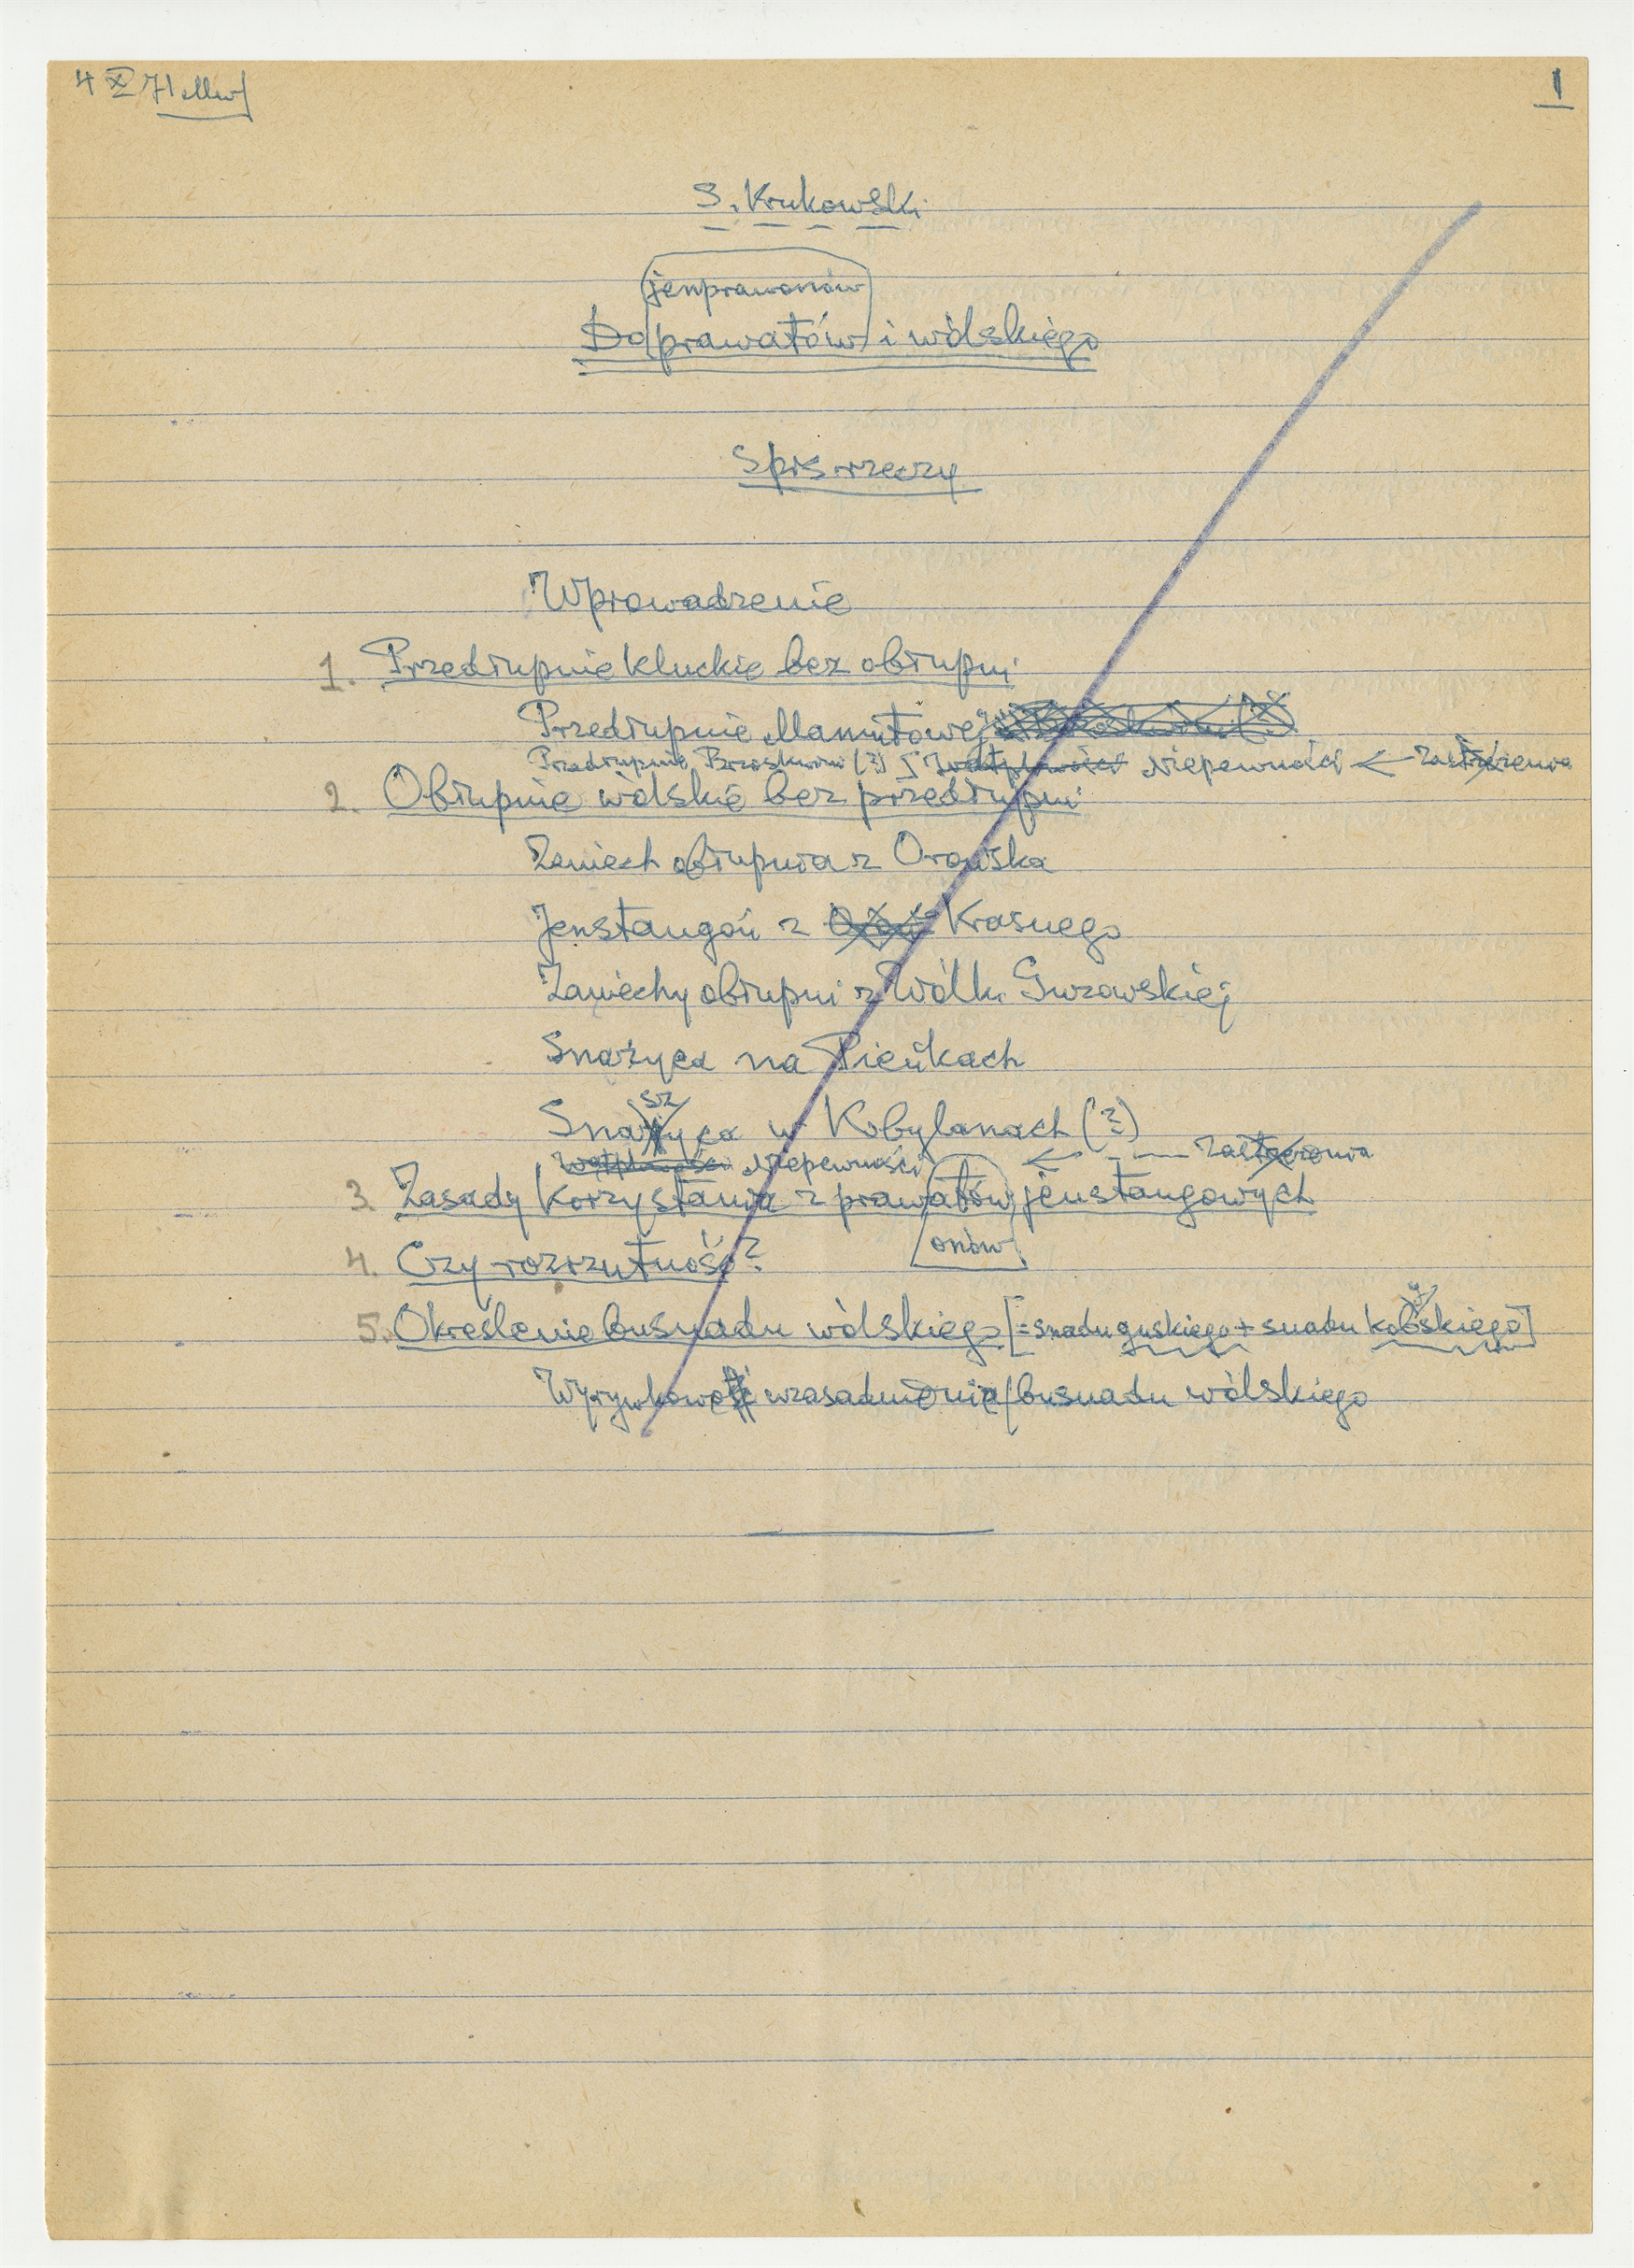 4 X 71
1
S. Krukowski
jenprawonów
Do prawatów i wólskiego
Spis rzeczy
Wprowadzenie
1. Przedłupnie kluckie bez obłupni
Przedłupnie Mamutowej
Przedłupnie Brzoskwini (?) Wątpliwości Niepewności ← Zastrzeżenia
2. Obłupnie wólskie bez przedłupni
Zaniech obłupnia z Orońska
Jenstangoń z Krasnego
Zaniechy obłupni z Wólki Gwzowskiej
Snażyca na Pieńkach
sz
Snażyca w Kobylanach (?)
Wątpliwości Niepewności ← Zastrzeżenia
3. Zasady korzystania z prawatów jenstangowych
onów
4. Czy rozrzutność?
5. Określenie busnadu wólskiego [= snadu guskiego + snadu kobskiego]
Wyrywkowe uzasadnienie busnadu wólskiego